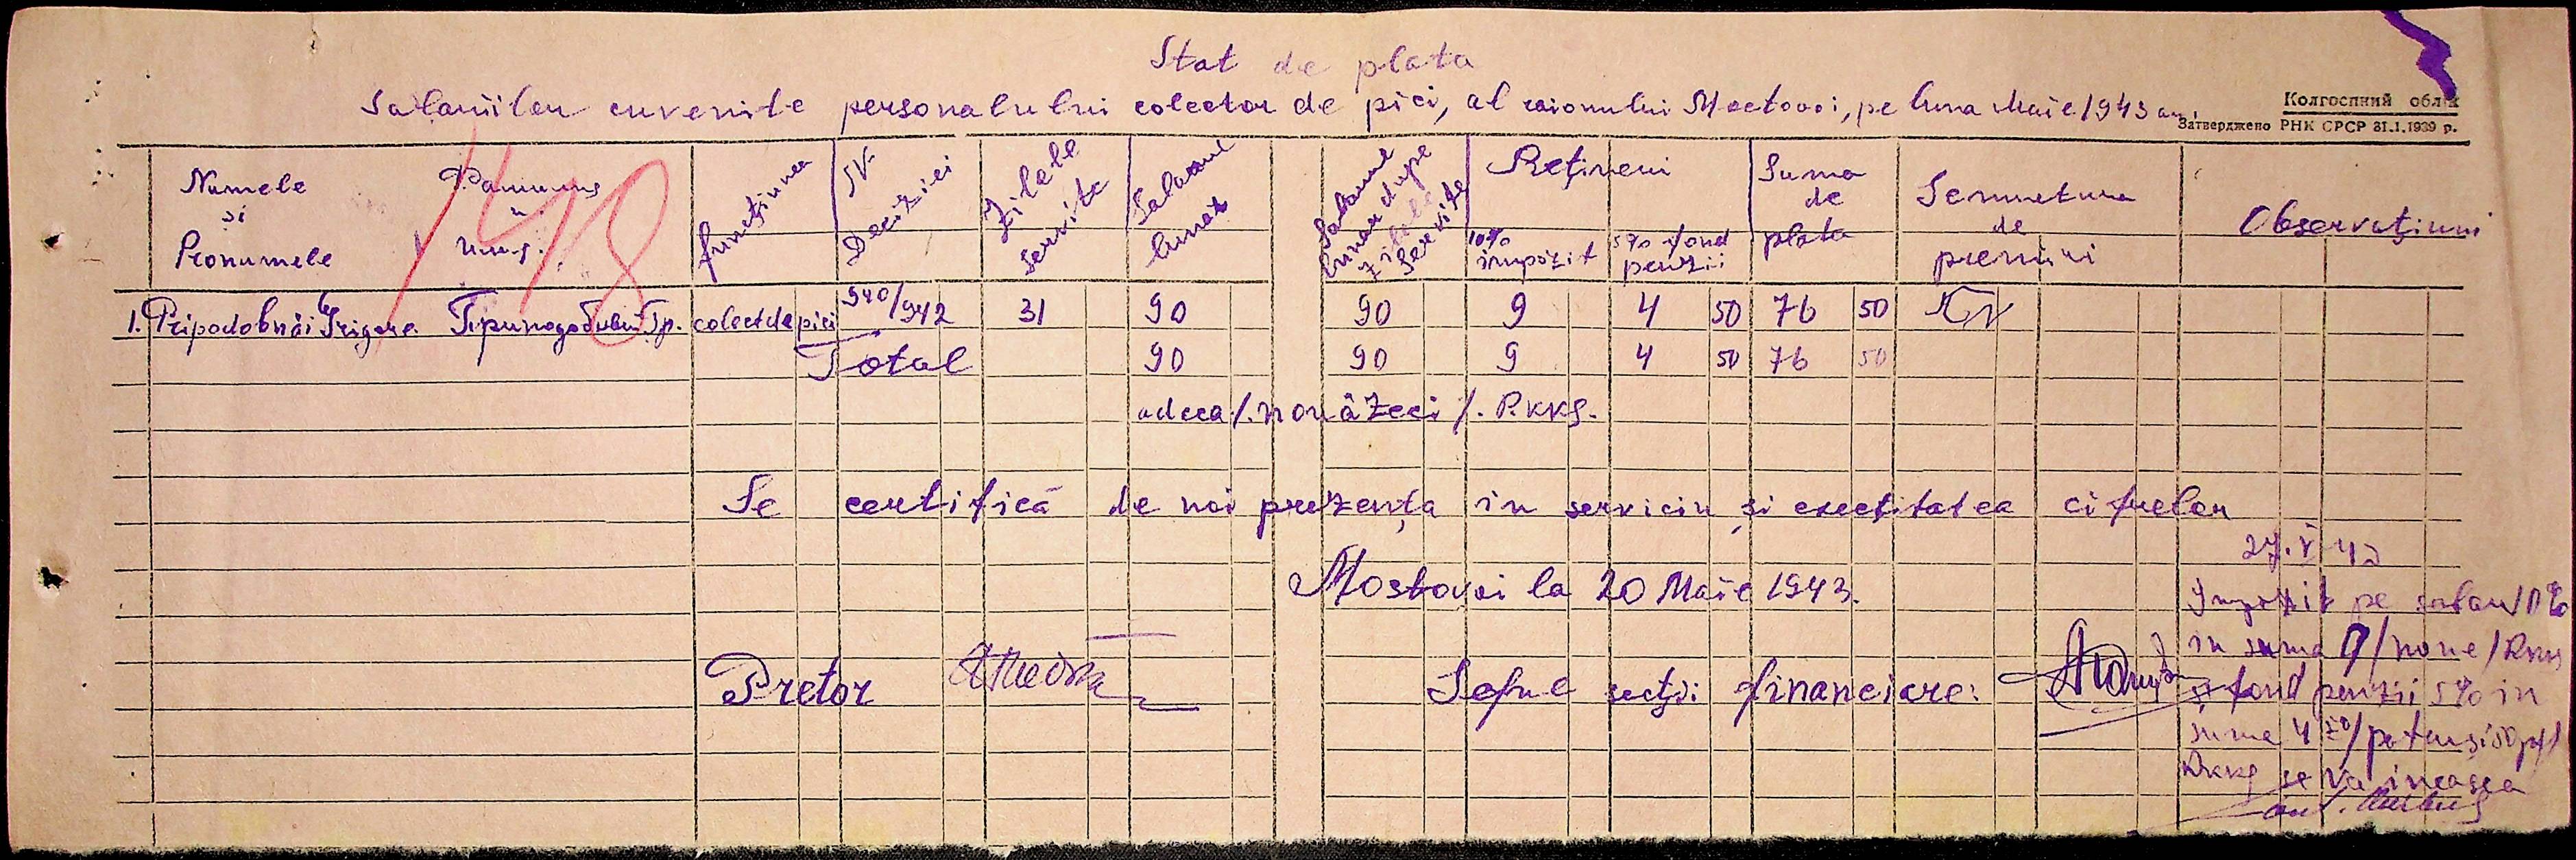 Stat de plata
Salariilor cuvenite personalului colector de piei, al raionului Mostovoi, pe luna Maie 1943 an.
Колгоспний облік
Затверджено РНК СРСР 31.1.1939 р.
148
Numele și Pronumele
funcțiunea
Nr Deciziei
Zilele servite
Salariul lunar
Salariul lunar dupe zilele servite
Rețineri
10% impozit
5% fond penzii
Suma de plata
Semnetura de premiri
Observațiuni
1. Pripodobnâi Grigore Преподобный Гр. colect de piei 940/942 31 90 90 9 4 50 76 50
Total 90 90 9 4 50 76 50
adeca /. nouăzeci /. Rkks.
Se certifică de noi prezența in serviciu și exectitatea cifrelor
Mostovoi la 20 Maie 1943.
Pretor
Șeful secții financiare:
27.V.43
Impozit pe salar 10%
in suma 9 /none/ Rkks
și fond penzii 5% in
suma 4 50 /patru și 50 pf/
Rkks se va incasca